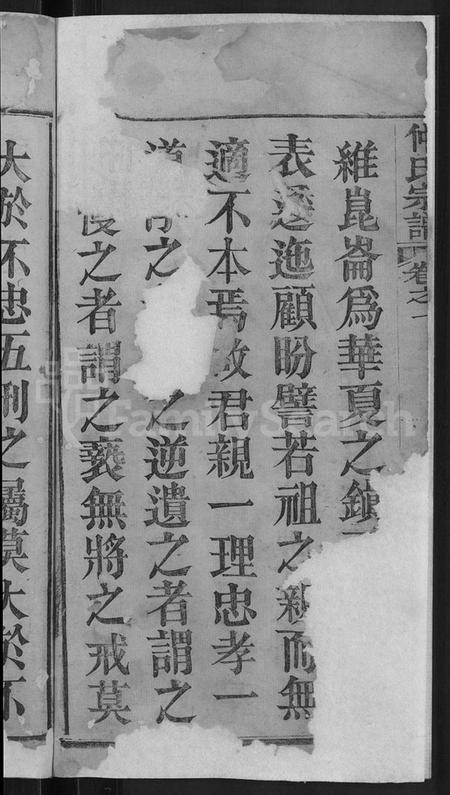 何氏宗譜 卷之一
維崑崙爲華夏之鎮
表逶迤顧盼譬若祖之親而無
適不本焉故君親一理忠孝一
道
之
之逆遺之者謂之
慢之者謂之褻無將之戒莫
大於不忠五刑之屬莫大於不
FamilySearch